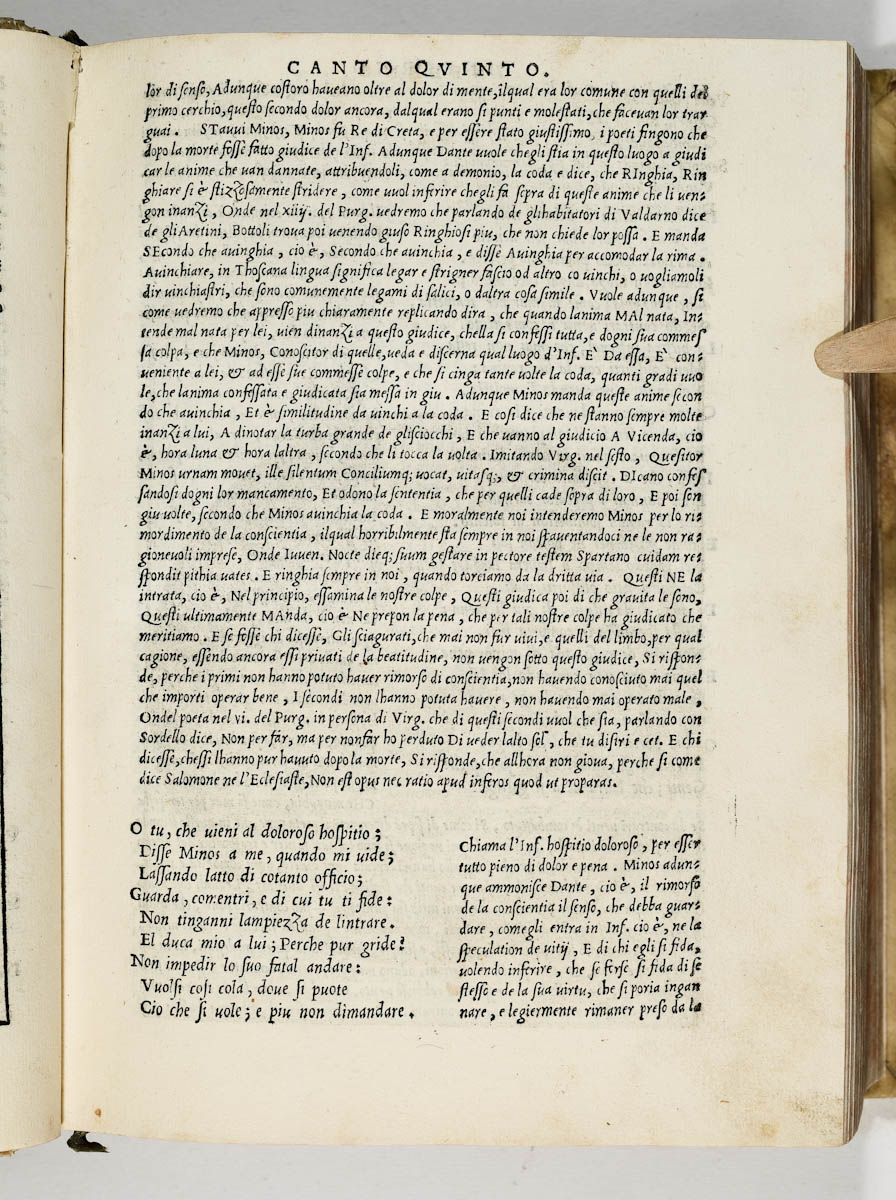 CANTO QVINTO.
lor di senso, Adunque costoro haueano oltre al dolor di mente, ilqual era lor comune con quelli del
primo cerchio, questo secondo dolor ancora, dalqual erano si punti e molestati, che faceuan lor trar
guai. STauui Minos, Minos fu Re di Creta, e per essere stato giustissimo, i poeti fingono che
dopo la morte fosse fatto giudice de l'Inf. Adunque Dante uuole chegli stia in questo luogo a giudi
car le anime che uan dannate, attribuendoli, come a demonio, la coda e dice, che RInghia, Rin
ghiare si è stizzosamente stridere, come uuol inferire chegli fa sopra di queste anime che li uen-
gon inanzi, Onde nel xiiij. del Purg. uedremo che parlando de glihabitatori di Valdarno dice
de gli Aretini, Bottoli troua poi uenendo giuso Ringhiosi piu, che non chiede lor possa. E manda
SEcondo che auinghia, cio è, Secondo che auinchia, e disse Auinghia per accomodar la rima.
Auinchiare, in Thoscana lingua significa legar e strigner fascio od altro co uinchi, o uogliamoli
dir uinchiastri, che sono comunemente legami di salici, o daltra cosa simile. Vuole adunque, si
come uedremo che appresso piu chiaramente replicando dira, che quando lanima MAl nata, In-
tende mal nata per lei, uien dinanzi a questo giudice, chella si confessi tutta, e dogni sua commes
sa colpa, e che Minos, Conoscitor di quelle, ueda e discerna qual luogo d'Inf. E' Da essa, E' con-
ueniente a lei, & ad esse sue commesse colpe, e che si cinga tante uolte la coda, quanti gradi uuo
le, che lanima confessata e giudicata sia messa in giu. Adunque Minos manda queste anime secon
do che auinchia, Et è similitudine da uinchi a la coda. E cosi dice che ne stanno sempre molte
inanzi a lui, A dinotar la turba grande de gli sciocchi, E che uanno al giudicio A Vicenda, cio
è, hora luna & hora laltra, secondo che li tocca la uolta. Imitando Virg. nel sesto, Quesitor
Minos urnam mouet, ille silentum Conciliumq; uocat, uitasq;, & crimina discit. DIcano confes
sandosi dogni lor mancamento, Et odono la sententia, che per quelli cade sopra di loro, E poi son
giu uolte, secondo che Minos auinchia la coda. E moralmente noi intenderemo Minos per lo ri-
mordimento de la conscientia, ilqual horribilmente sta sempre in noi spauentandoci ne le non ra-
gioneuoli imprese, Onde Iuuen. Nocte dieq; suum gestare in pectore testem Spartano cuidam re-
spondit pithia uates. E ringhia sempre in noi, quando torciamo da la dritta uia. Questi NE la
intrata, cio è, Nel principio, essamina le nostre colpe, Questi giudica poi di che grauita le sono,
Questi ultimamente MAnda, cio è Ne prepon la pena, che per tali nostre colpe ha giudicato che
meritiamo. E se fosse chi dicesse, Gli sciagurati, che mai non fur uiui, e quelli del limbo, per qual
cagione, essendo ancora essi priuati de la beatitudine, non uengon sotto questo giudice, Si rispon-
de, perche i primi non hanno potuto hauer rimorso di conscientia, non hauendo conosciuto mai quel
che importi operar bene, I secondi non lhanno potuta hauere, non hauendo mai operato male,
Ondel poeta nel vi. del Purg. in persona di Virg. che di questi secondi uuol che sia, parlando con
Sordello dice, Non per far, ma per nonfar ho perduto Di ueder lalto sol, che tu disiri e cet. E chi
dicesse, chessi lhanno pur hauuto dopo la morte, Si risponde, che allhora non gioua, perche si come
dice Salomone ne l'Eclesiaste, Non est opus nec ratio apud inferos quod ut proparas.
O tu, che uieni al doloroso hospitio;
Disse Minos a me, quando mi uide;
Lassando latto di cotanto officio;
Guarda, comentri, e di cui tu ti fide:
Non tinganni lampiezza de lintrare.
El duca mio a lui; Perche pur gride?
Non impedir lo suo fatal andare:
Vuolsi cosi cola, doue si puote
Cio che si uole; e piu non dimandare.
Chiama l'Inf. hospitio doloroso, per esser
tutto pieno di dolor e pena. Minos adun-
que ammonisce Dante, cio è, il rimorso
de la conscientia il senso, che debba guar-
dare, comegli entra in Inf. cio è, ne la
speculation de uitij, E di chi egli si fida,
uolendo inferire, che se forse si fida di se
stesso e de la sua uirtu, che si poria ingan
nare, e legiermente rimaner preso da la